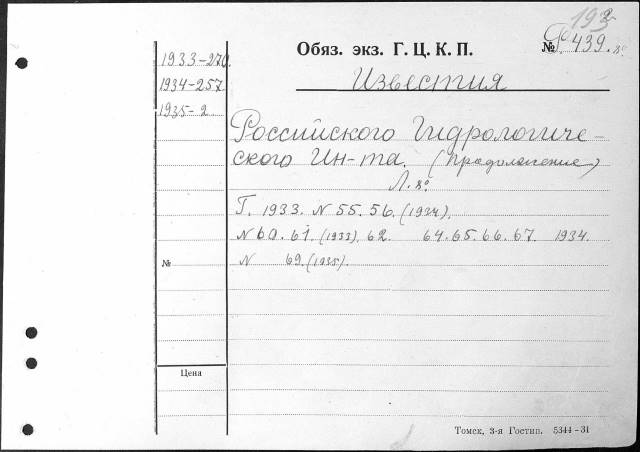 193
Обяз. экз. Г. Ц. К. П.
№ 439. 8°
Известия
1933-270.
1934-257
1935-2
Российского Гидрологиче-
ского Ин-та. (продолжение)
Л. 8°
Г. 1933. N 55. 56. (1934).
N 60. 61. (1933). 62. 64. 65. 66. 67. 1934.
N 69. (1935).
№
Цена
Томск, 3-я Гостип. 5344-31